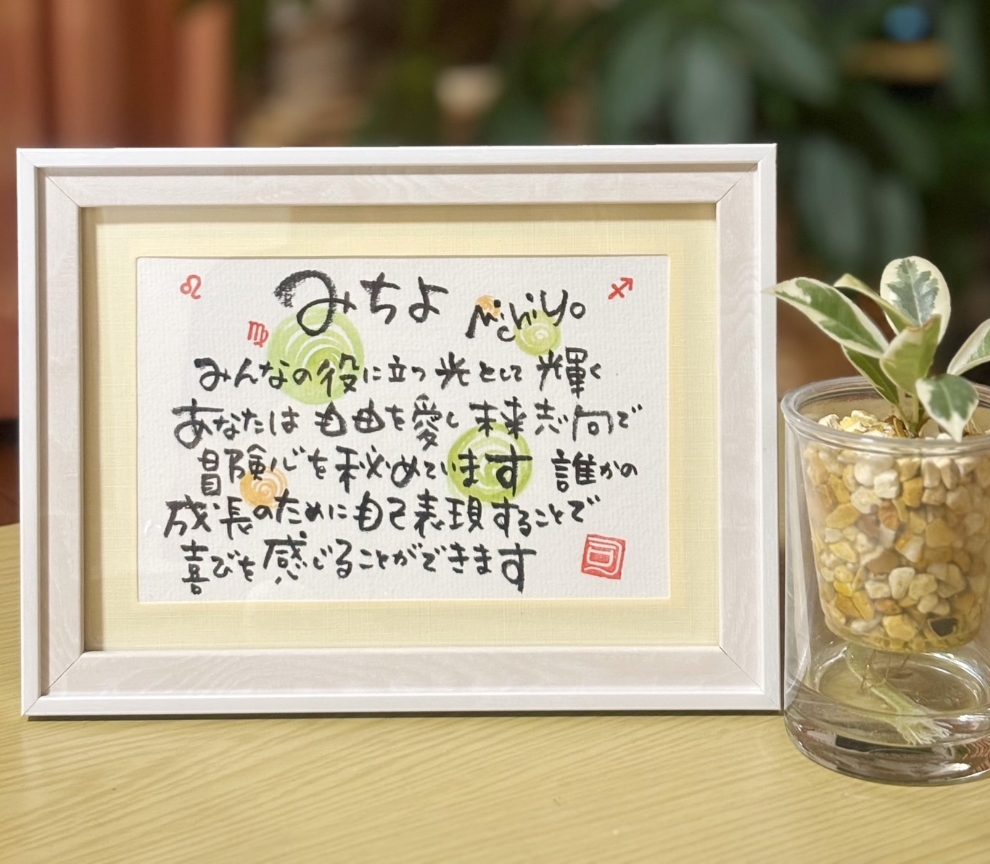 ♌ みちよ Michiyo ♐
♍
みんなの役に立つ光として輝く
あなたは自由を愛し未来志向で
冒険心を秘めています 誰かの
成長のために自己表現することで
喜びを感じることができます